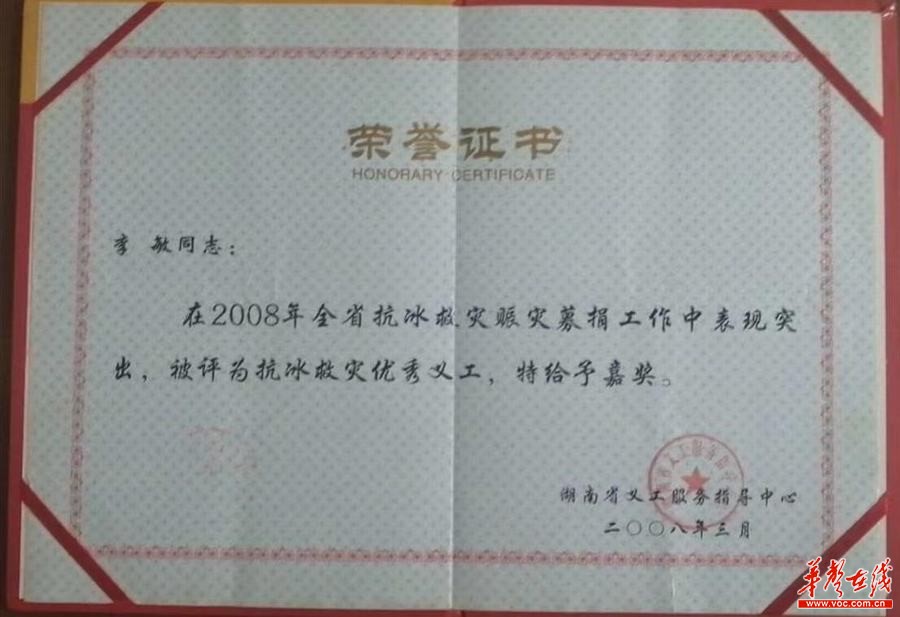 荣誉证书
HONORARY CERTIFICATE
李 敏同志：
在2008年全省抗冰救灾赈灾募捐工作中表现突
出，被评为抗冰救灾优秀义工，特给予嘉奖。
湖南省义工服务指导中心
二〇〇八年三月
华声在线
www.voc.com.cn